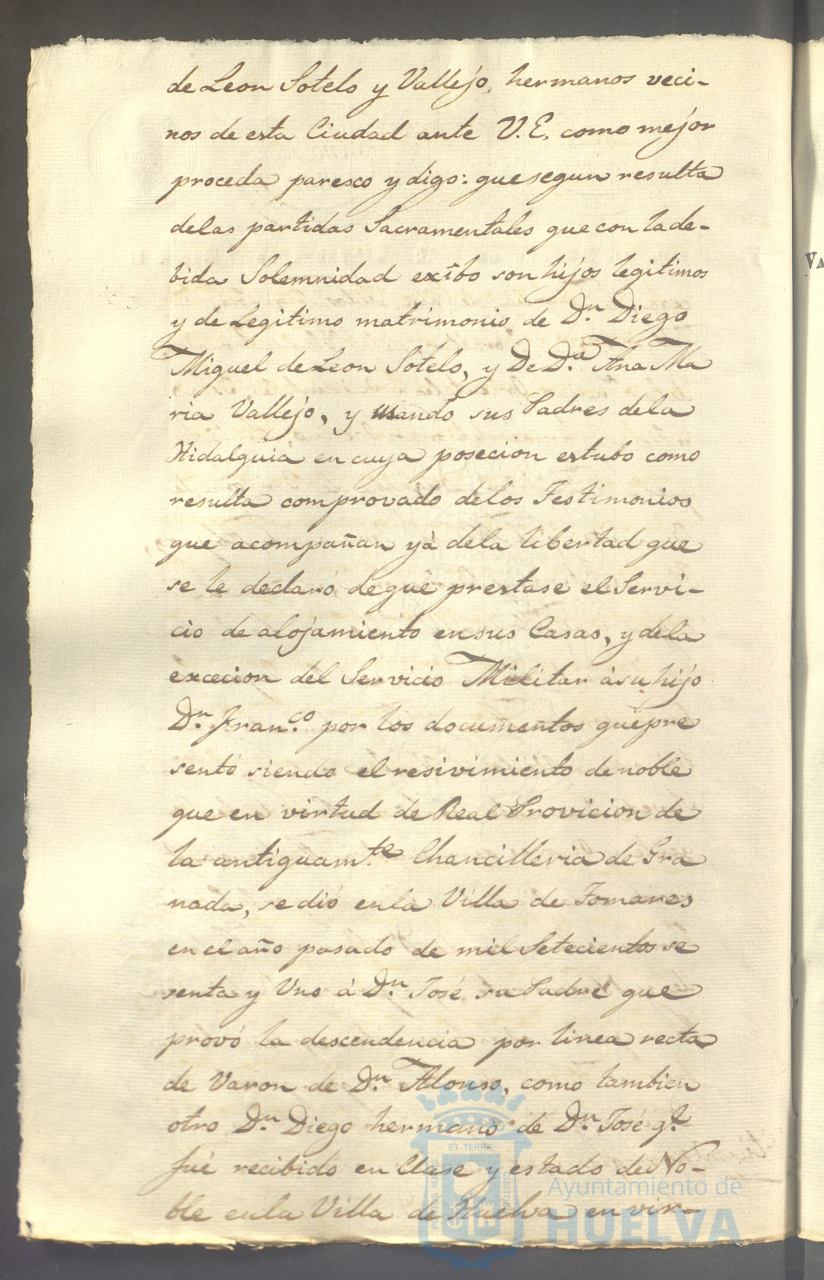 de Leon Sotelo y Vallejo, hermanos veci-
nos de esta Ciudad ante V.E. como mejor
proceda paresco y digo: que segun resulta
delas partidas Sacramentales que con la de-
bida Solemnidad exibo son hijos legitimos
y de Legitimo matrimonio de Dn. Diego
Miguel de Leon Sotelo, y De Da. Ana Ma
ria Vallejo, y usando sus Padres dela
Hidalguia en cuya posecion estubo como
resulta comprovado delos Testimonios
que acompañan yá dela libertad que
se le declaró de que prestase el Servi-
cio de alojamiento en sus Casas, y dela
excecion del Servicio Militar ásu hijo
Dn. Franco. por los documentos que pre
sentó siendo el resivimiento de noble
que en virtud de Real Provicion de
la antiguamte. Chancilleria de Gra
nada, se dió enla Villa de Tomares
en el año pasado de mil Setecientos se
senta y Uno á Dn. José su Padre que
provó la descendencia por linea recta
de Varon de Dn. Alonso, como tambien
otro Dn. Diego hermano de Dn. José qe.
fué recibido en Clase y estado de No-
ble enla Villa de Huelva en vir-
ET TERRÆ
Ayuntamiento de
HUELVA
VA